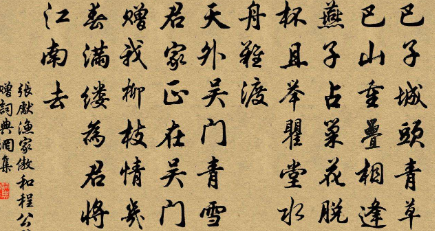 巴子城頭青草
巴山重疊相逢
燕子占巢花脱
杯且举瞿堂水
舟難渡
天外吴门青雪
君家正在吴门
赠我柳枝情幾
春满缕為君将
江南去
張獻渔家傲和程公
赠詞典周集